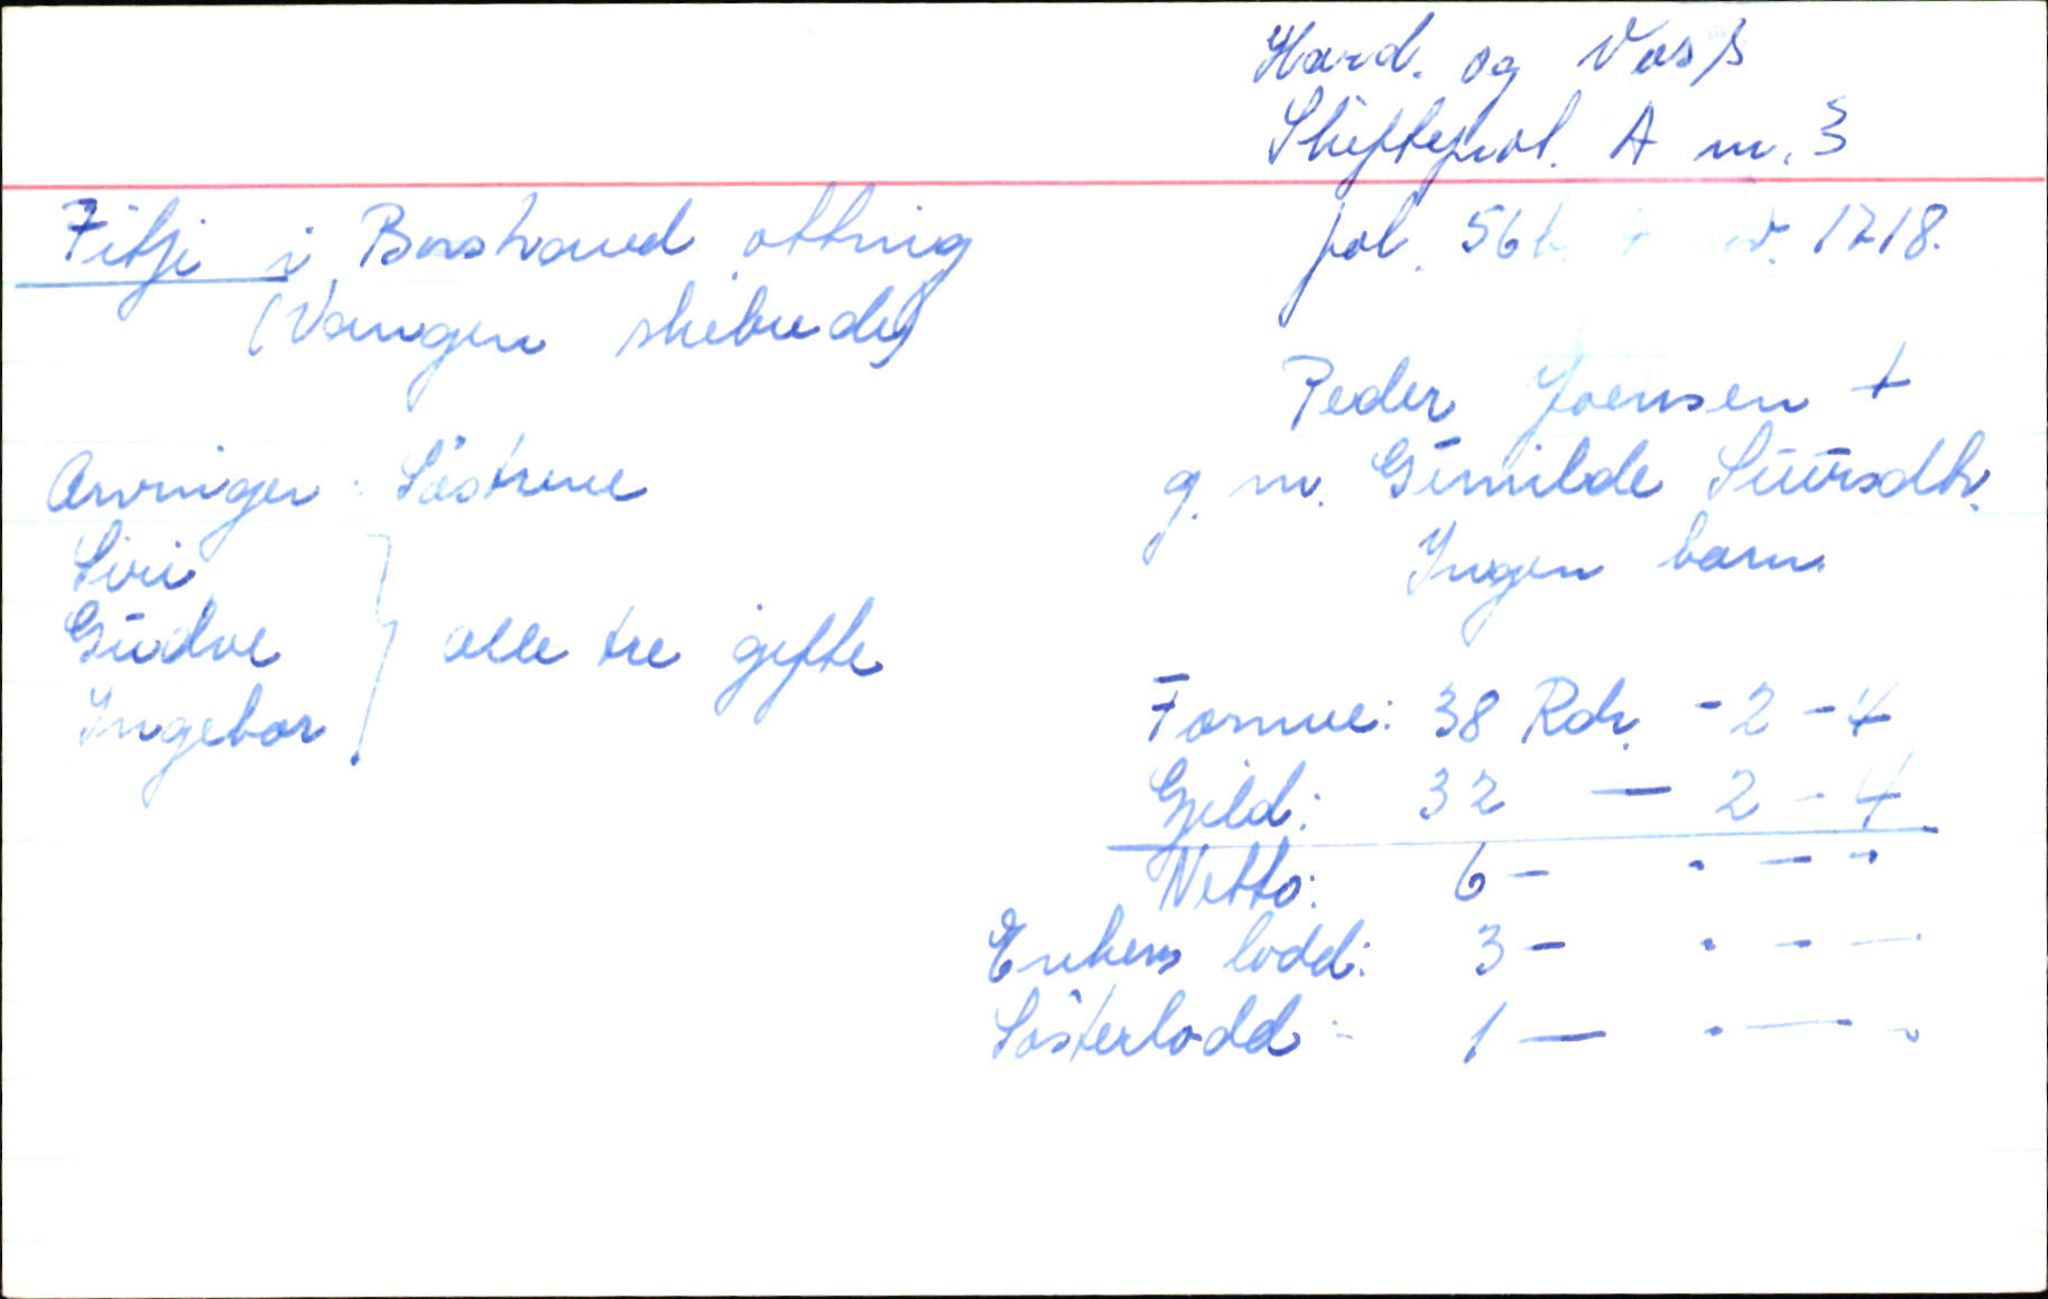 Hard. og Voss
Skifteprot. A nr. 3
Fitje i Borstrand ottnig
fol. 56 1718.
(Vangen skibrede)
Peder Joensen +
g. m. Gunilde Siursdtr.
Ingen barn.
Arvinger: Søstrene
Siri
Gudve
alle tre gifte
Ingebor
Formue: 38 Rdr. - 2 - 4
Gjeld: 32 — 2 - 4
Netto: 6 - . - -
Enkens lodd: 3 - . - -
Søsterlodd - 1 — . — -